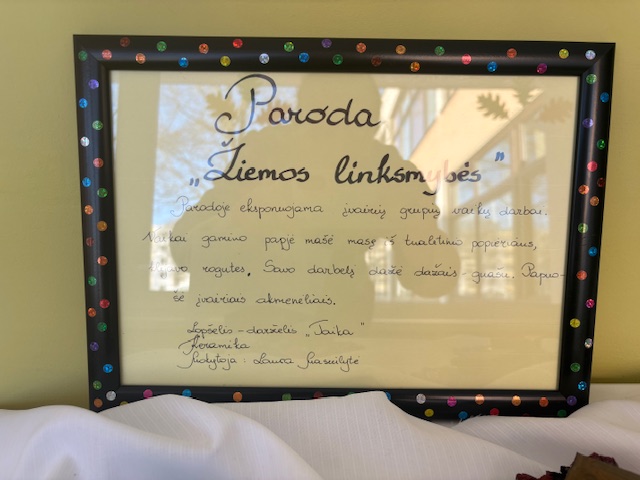 Paroda
„Žiemos linksmybės"
Parodoje eksponuojama įvairių grupių vaikų darbai.
Vaikai gamino papjė mašė masę iš tualetinio popieriaus,
rogutes. Savo darbelį dažė dažais - guašu. Papuo-
šė įvairiais akmenėliais.
Lopšelis - darželis „Taika"
Keramika
Mokytoja: Laura